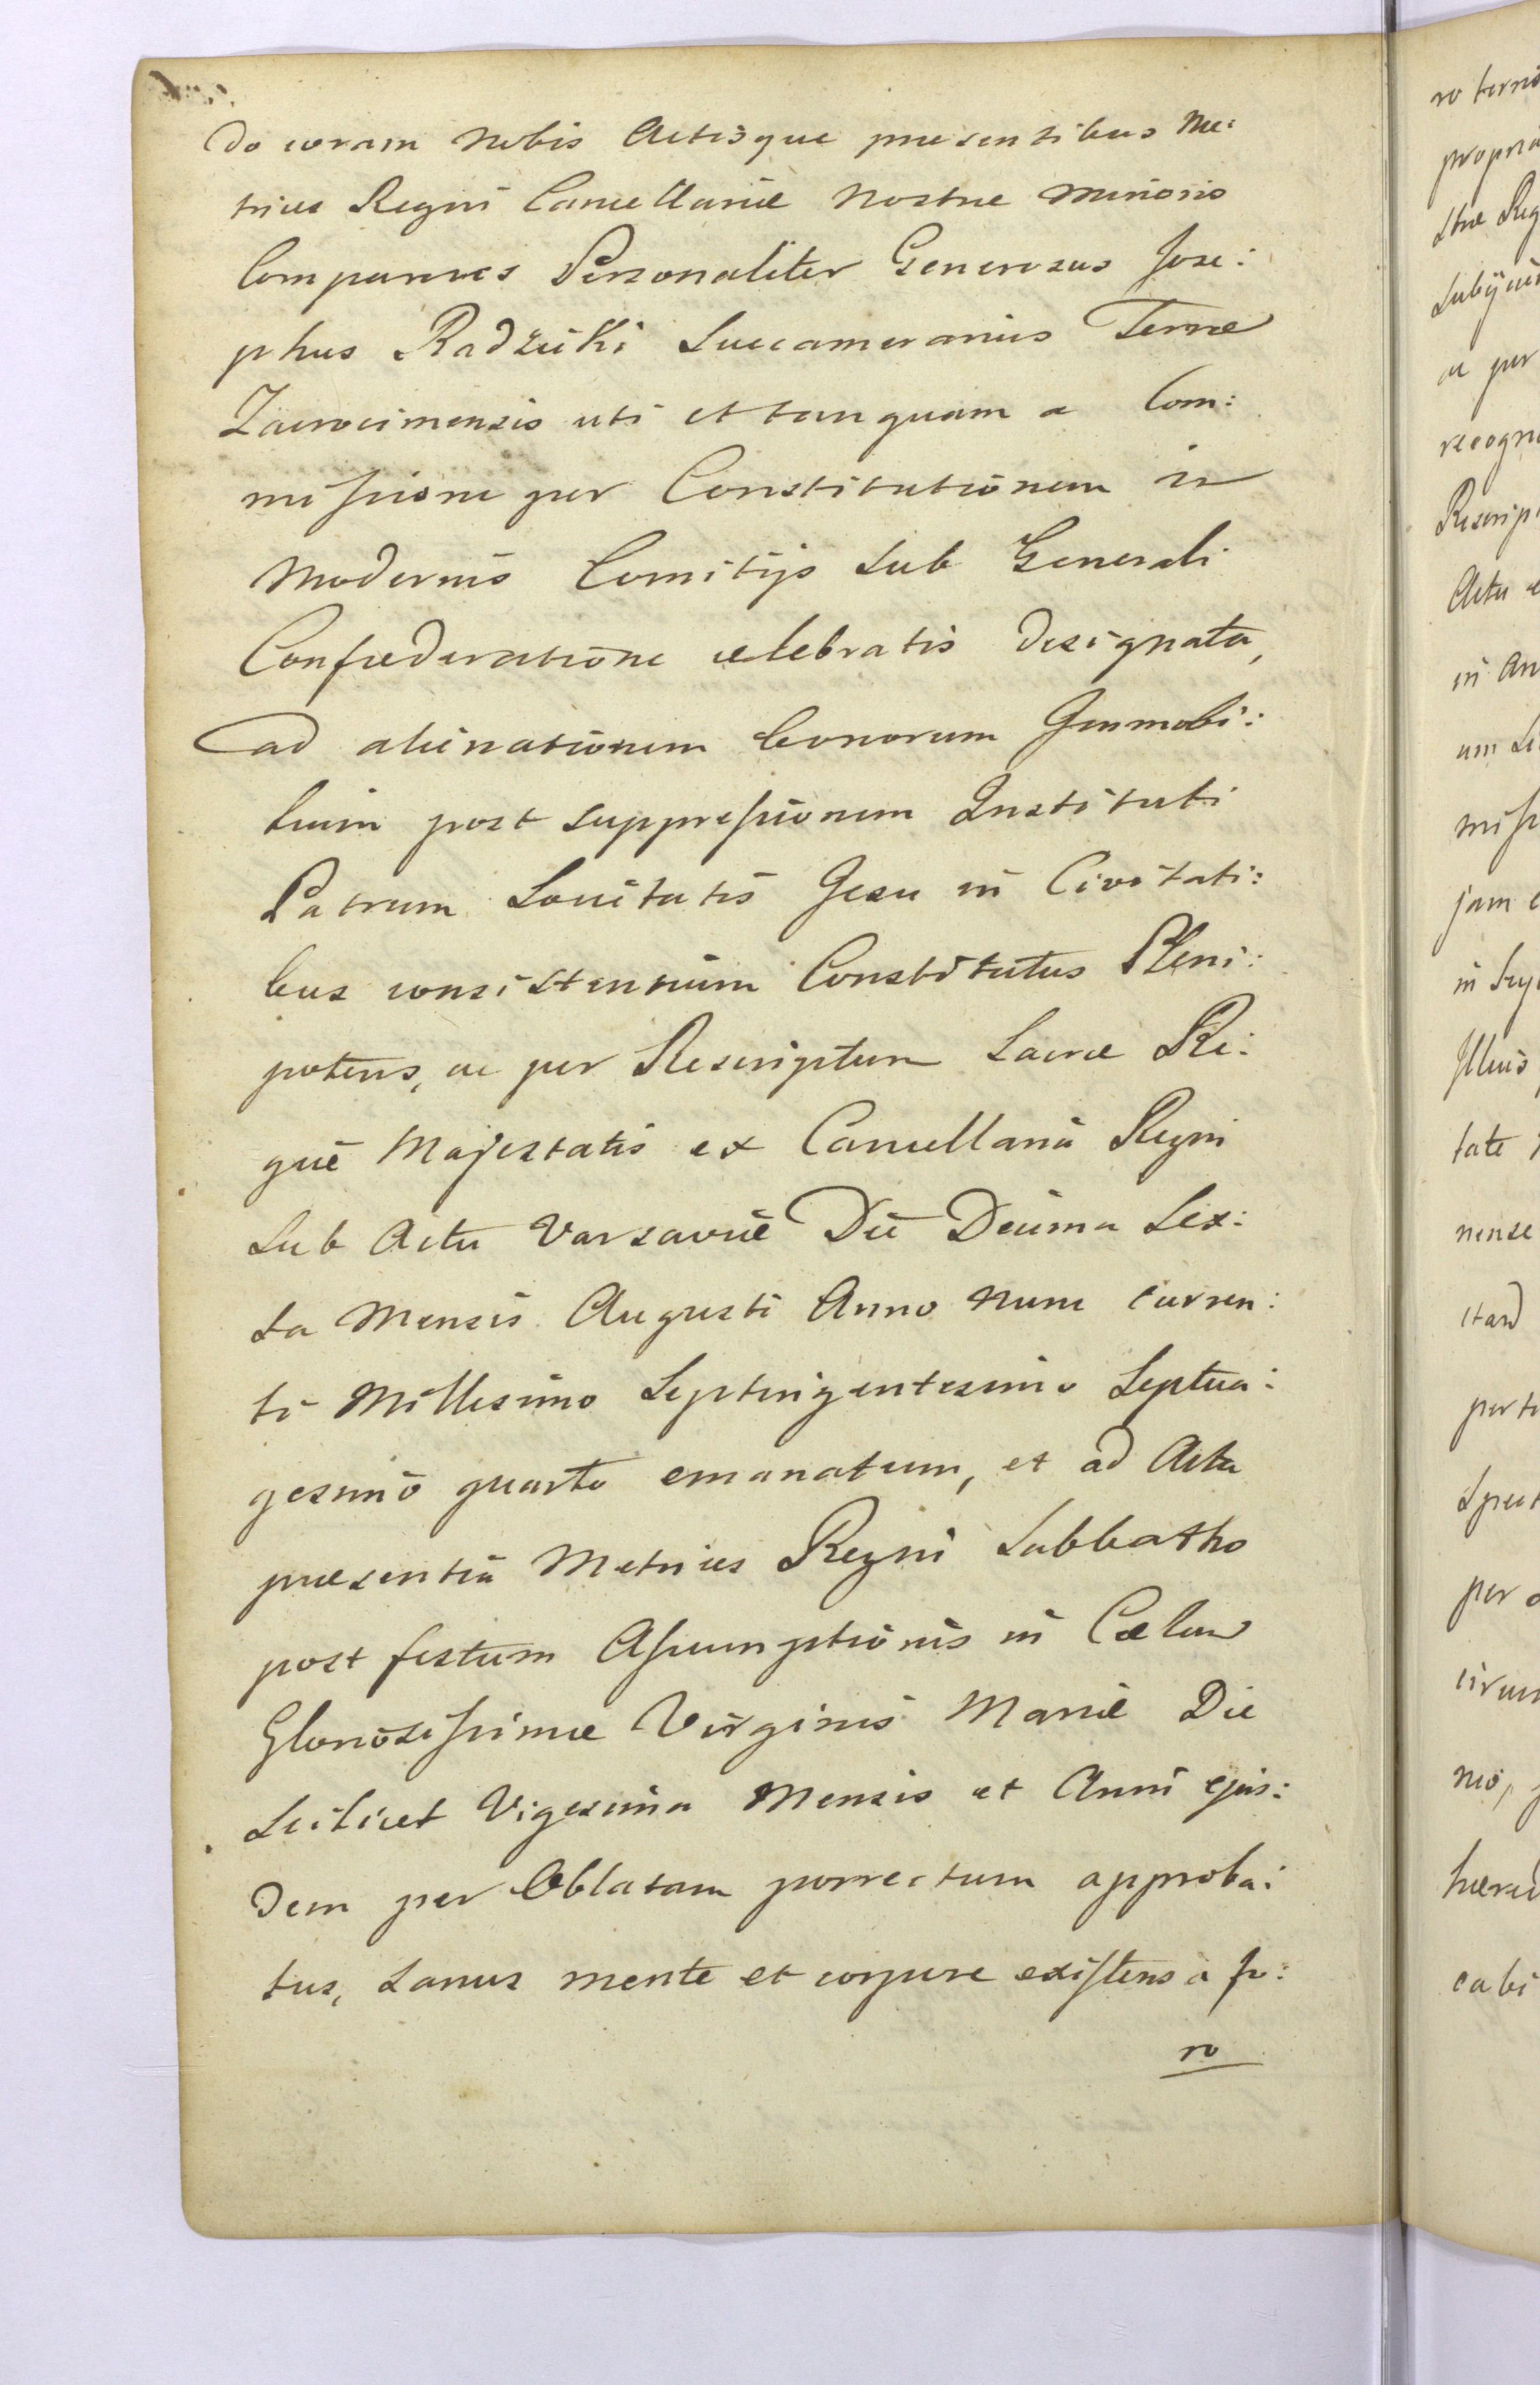 do coram Nobis Actisque praesentibus Me:
trices Regni Cancellariae Nostrae Minoris
Comparens Personaliter Generosus Jose:
phus Radzicki Succamerarius Terrae
Zacrocimensis uti et tanquam a Com:
missione per Constitutionem in
Modernis Comitijs sub Generali
Confaederatione celebratis designata,
ad alienationem bonorum Immobi:
lium post suppressionem Instituti
Patrum Societatis Jesu in Civitati:
bus consistentium Constitutus Pleni:
potens, ac per Rescriptum Sacrae Re:
giae Majestatis ex Cancellaria Regni
sub Actu Varsaviae Die Decima Sex:
ta Mensis Augusti Anno nunc curren:
ti Millesimo Septingentesimo Septua:
gesimo quarto emanatum, et ad Acta
praesentia Metrices Regni Sabbatho
post festum Assumptionis in Caelum
Gloriosissimae Virginis Mariae Die
scilicet Vigesima Mensis et Anni ejus:
dem per Oblatam porrectum approba:
tus, sanus mente et corpore existens à fo:
ro
ro
propria
strae Reg
ac per
recogn
Rescrip
Actu
in An
um
miss
jam
in
Illius
tate
nense
per
per
circum
cabi